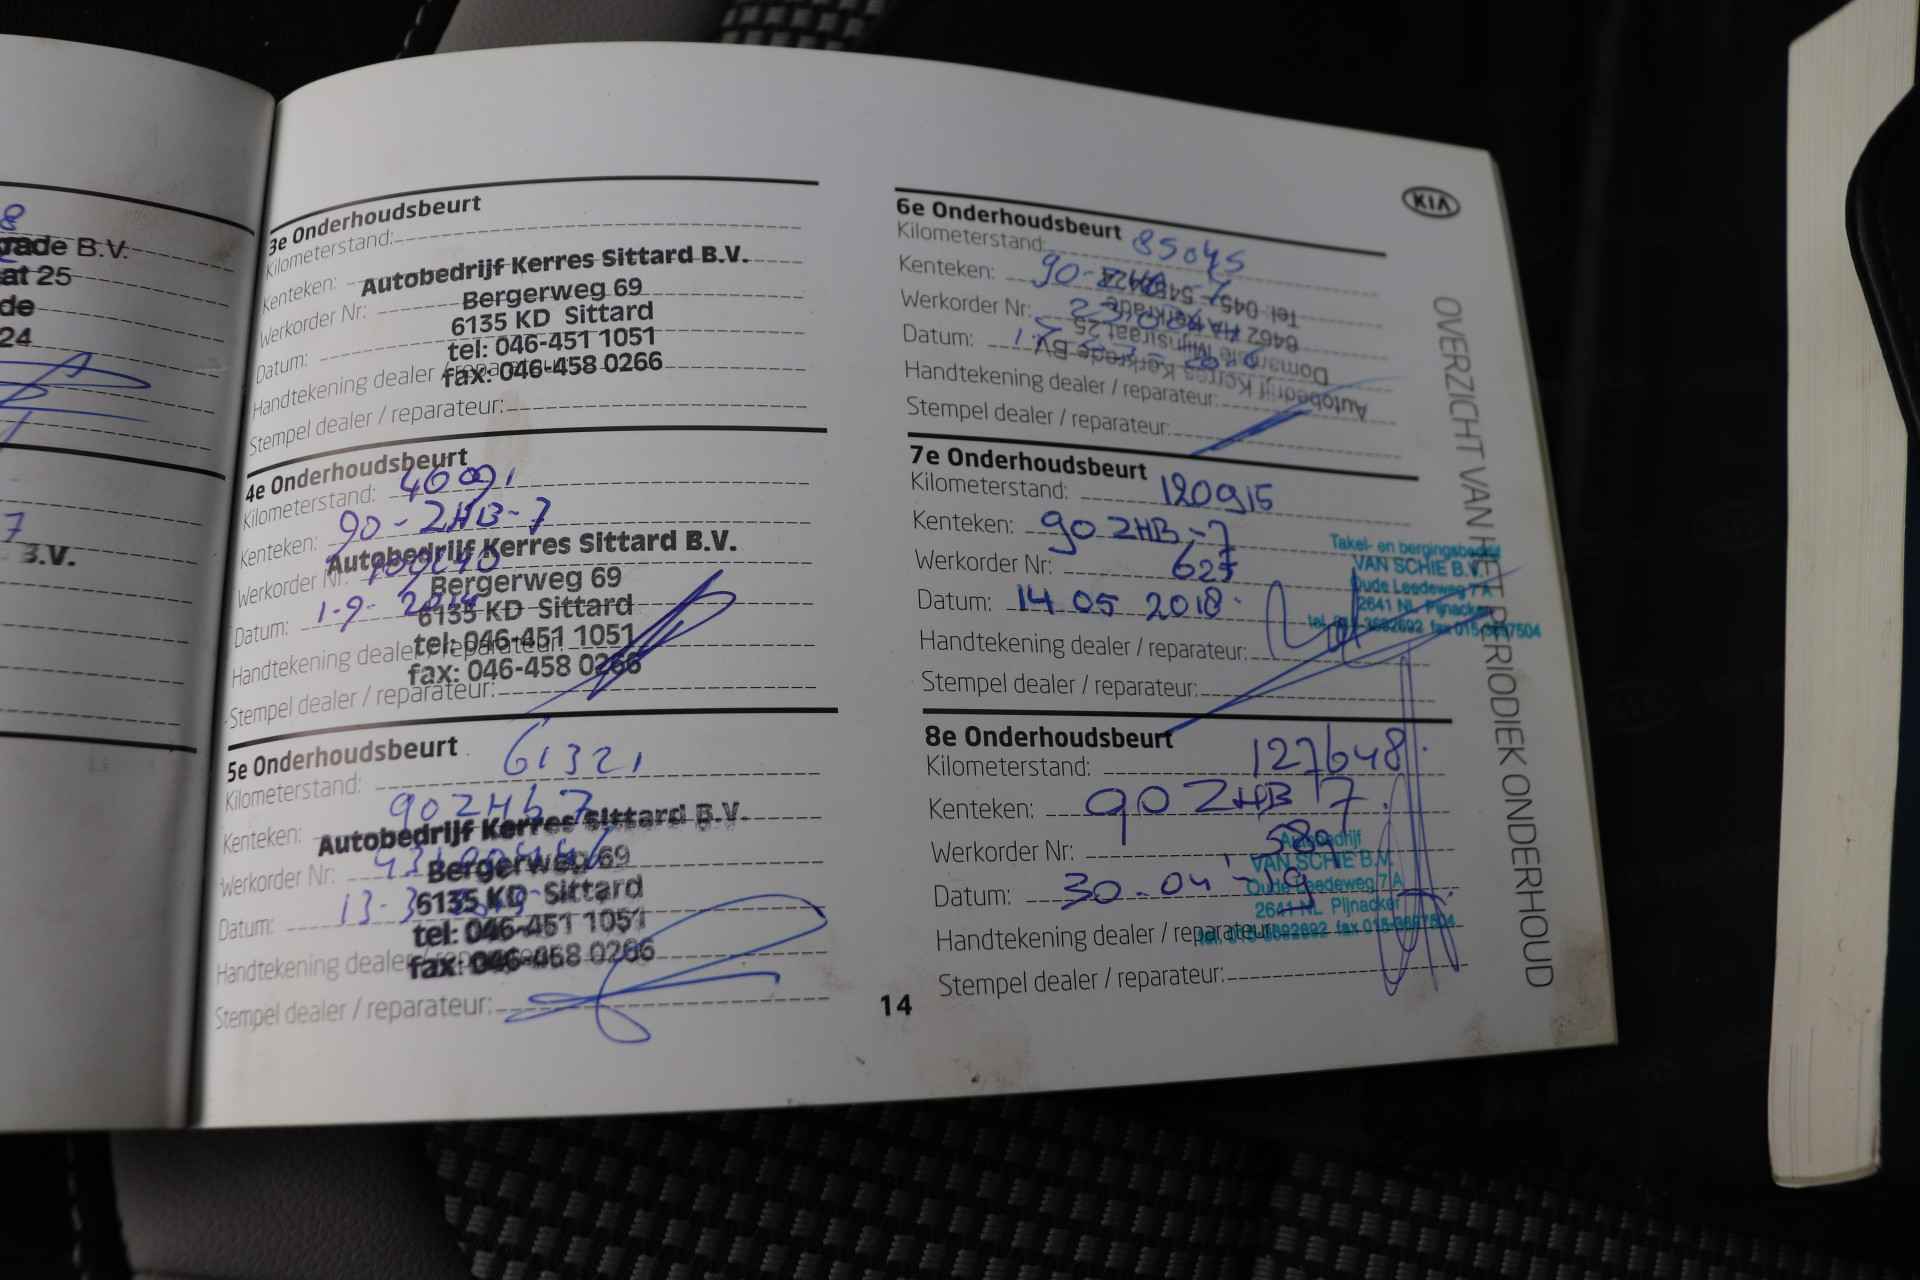 8
rade B.V.
at 25
de
24
7
B.V.
3e Onderhoudsbeurt
Kilometerstand:
Kenteken:
Autobedrijf Kerres Sittard B.V.
Werkorder Nr:
Bergerweg 69
6135 KD Sittard
Datum:
tel: 046-451 1051
Handtekening dealer / reparateur:
fax: 046-458 0266
Stempel dealer / reparateur:
4e Onderhoudsbeurt
Kilometerstand: 40091
Kenteken: 90-ZHB-7
Autobedrijf Kerres Sittard B.V.
Werkorder Nr:
Bergerweg 69
Datum: 1-9-2014
6135 KD Sittard
tel: 046-451 1051
Handtekening dealer / reparateur:
fax: 046-458 0266
Stempel dealer / reparateur:
5e Onderhoudsbeurt
Kilometerstand: 61321
Kenteken: 90ZHb7
Autobedrijf Kerres Sittard B.V.
Werkorder Nr:
Bergerweg 69
Datum: 13-3-
6135 KD Sittard
tel: 046-451 1051
Handtekening dealer / reparateur:
fax: 046-458 0266
Stempel dealer / reparateur:
14
KIA
6e Onderhoudsbeurt
Kilometerstand: 85045
Kenteken: 90-
Werkorder Nr:
Datum:
Handtekening dealer / reparateur:
Stempel dealer / reparateur:
Autobedrijf Kerres Kerkrade BV
Domaniale Mijnstraat 25
6462 HA Kerkrade
Tel: 045-
7e Onderhoudsbeurt
Kilometerstand: 120915
Kenteken: 90 ZHB-7
Werkorder Nr: 627
Datum: 14 05 2018
Handtekening dealer / reparateur:
Stempel dealer / reparateur:
Takel- en bergingsbedrijf
VAN SCHIE B.V.
Oude Leedeweg 7 A
2641 NL Pijnacker
tel. 015-3692692 fax 015-3697504
8e Onderhoudsbeurt
Kilometerstand: 127648
Kenteken: 90 ZHB 7
Werkorder Nr: 589
Datum: 30-04-19
Handtekening dealer / reparateur:
Stempel dealer / reparateur:
Autobedrijf
VAN SCHIE B.V.
Oude Leedeweg 7 A
2641 NL Pijnacker
tel. 015-3692692 fax 015-3697504
OVERZICHT VAN HET PERIODIEK ONDERHOUD